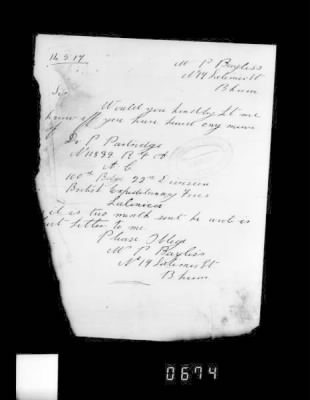 16.5.17
Mr P Bayliss
No 19
B'ham
Sir
Would you kindly let me
know if you have heard any more
of
Dr P Partridge
R F A
A C
100th Bdge 22nd Division
British Expeditionary Force
Salonica
it is two month sent he
letter to me
Please Oblige
Mr P Bayliss
No 19
B'ham
0674